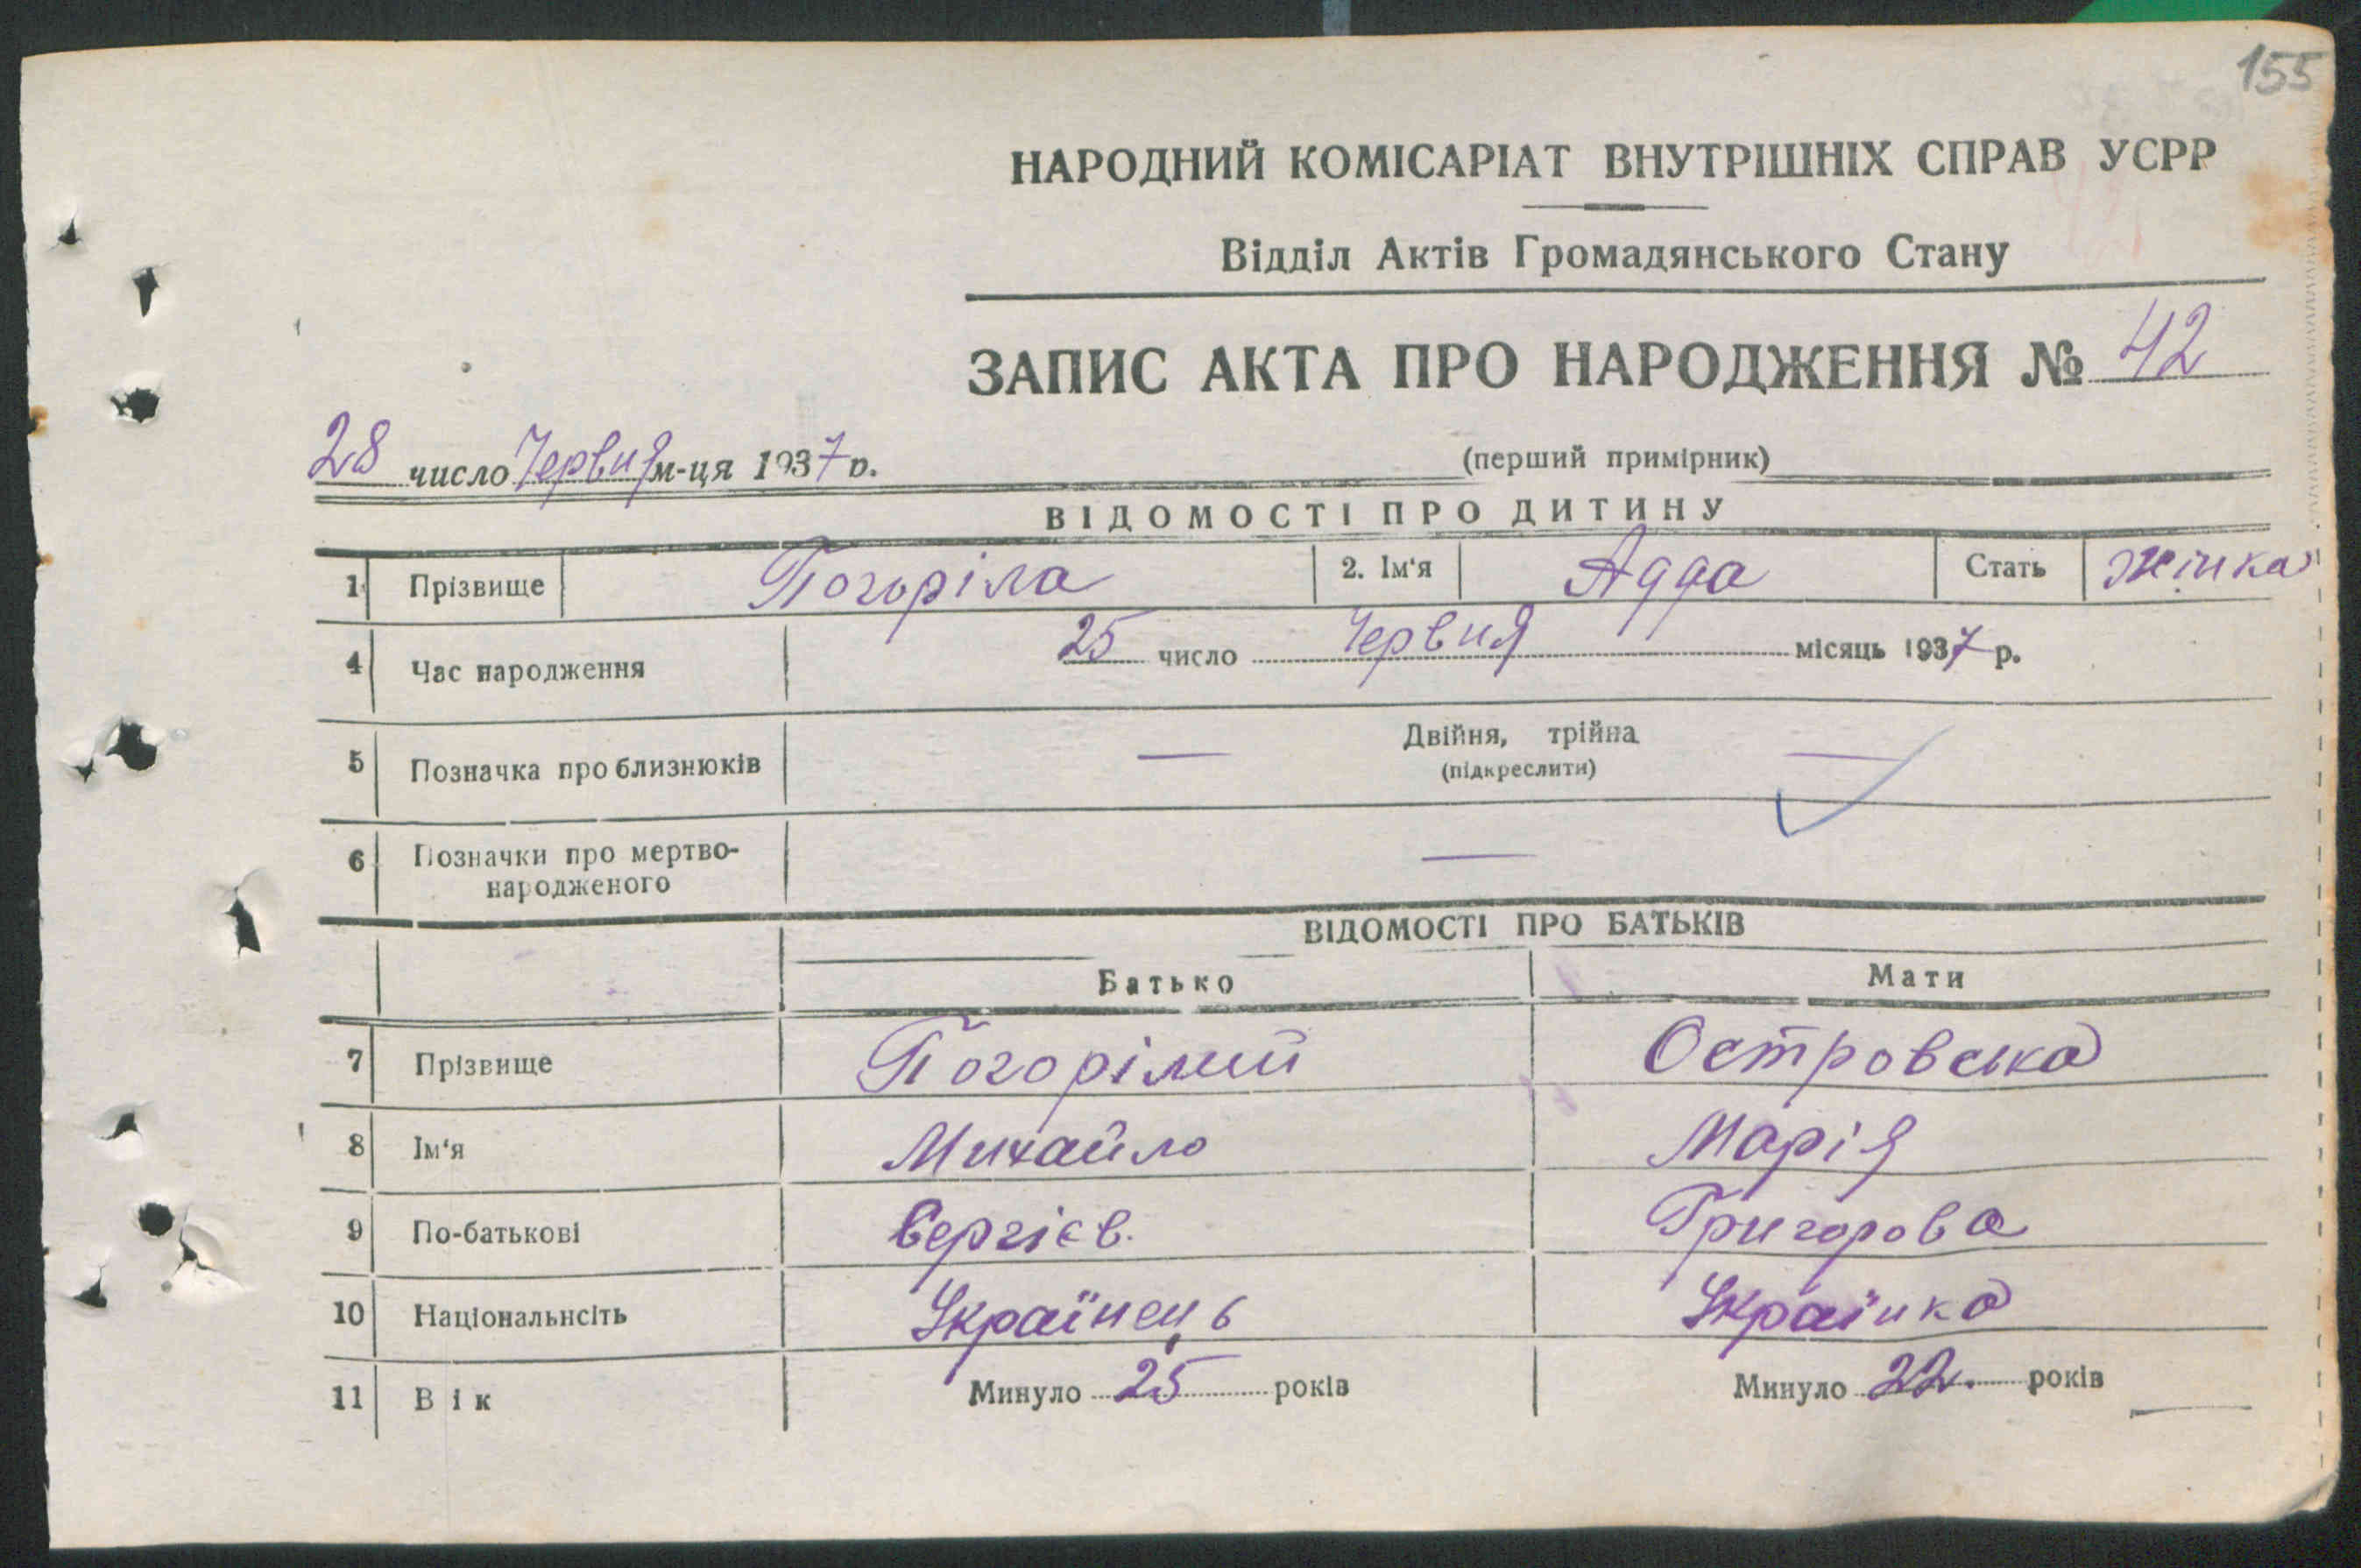 155
НАРОДНИЙ КОМІСАРІАТ ВНУТРІШНІХ СПРАВ УСРР
Відділ Актів Громадянського Стану
ЗАПИС АКТА ПРО НАРОДЖЕННЯ № 42
28 число Червня м-ця 1937 р.
(перший примірник)
ВІДОМОСТІ ПРО ДИТИНУ
1 Прізвище Погоріла 2. Ім'я Адда Стать жінка
4 Час народження 25 число Червня місяць 1937 р.
5 Позначка про близнюків — Двійня, трійна —
(підкреслити)
6 Позначки про мертво-
народженого —
ВІДОМОСТІ ПРО БАТЬКІВ
Батько Мати
7 Прізвище Погорілий Островська
8 Ім'я Михайло Марія
9 По-батькові Сергієв. Григорова
10 Національнсіть Українець Українка
11 Вік Минуло 25 років Минуло 22. років